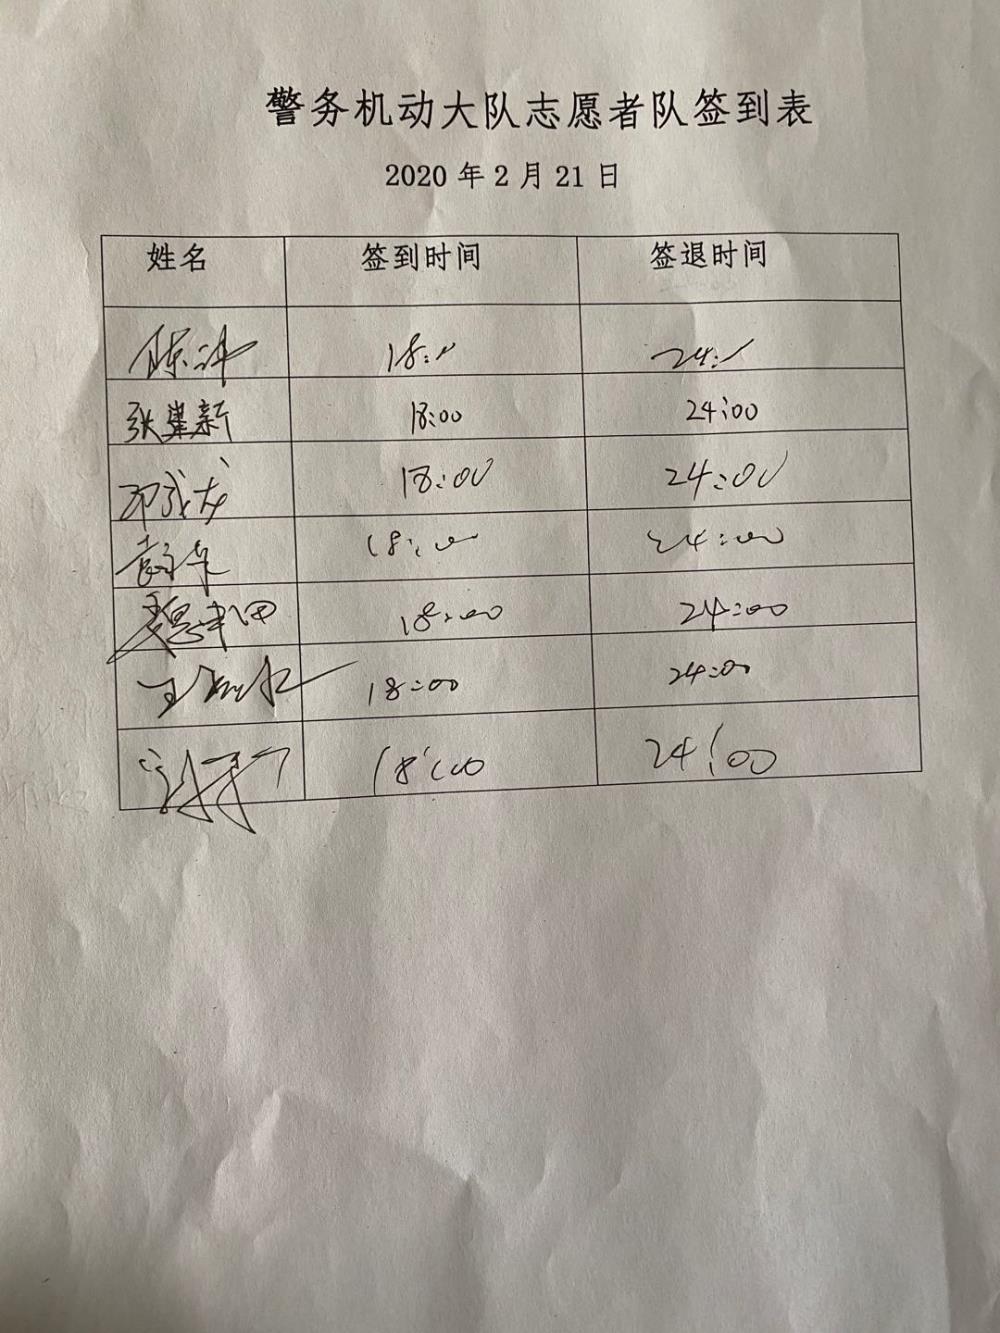 警务机动大队志愿者队签到表
2020 年 2 月 21 日
姓名 签到时间 签退时间
陈 18: 24:
张肇新 18:00 24:00
邓成龙 18:00 24:00
袁 18:00 24:00
魏 18:00 24:00
王 18:00 24:00
18:00 24:00